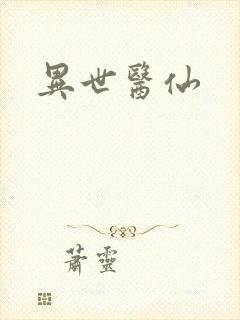 異世醫仙
蕭靈